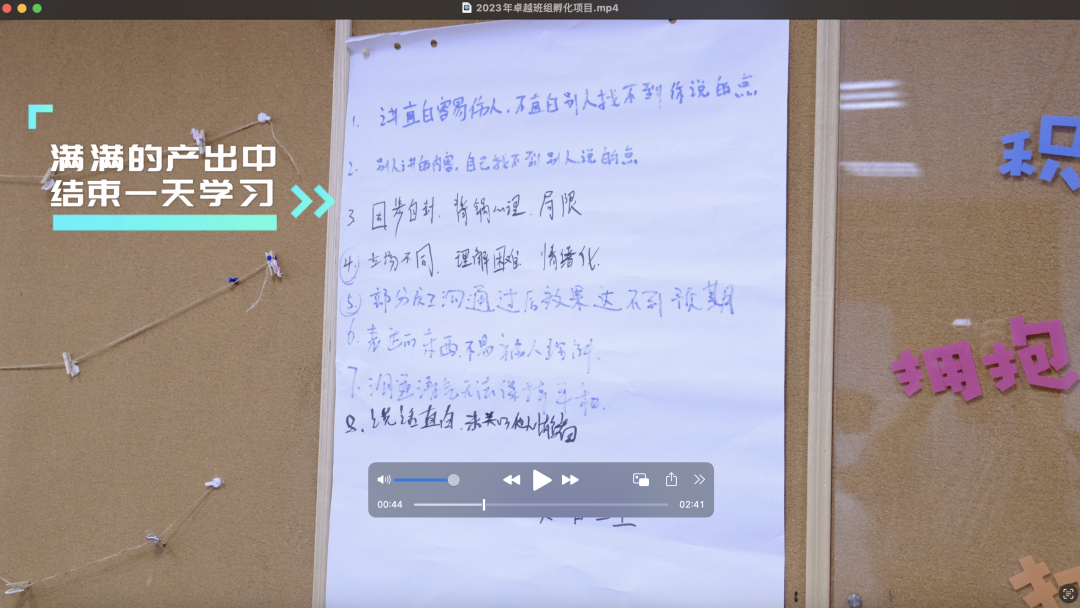 2023年卓越班组孵化项目.mp4
满满的产出中
结束一天学习
1. 讲直白容易伤人，不直白别人找不到你说的点
2. 别人讲的内容，自己找不到别人说的点
3 固步自封. 背锅心理. 局限
4. 立场不同. 理解困难 情绪化.
5. 部分员工沟通过后效果达不到预期
6. 表达的东西.不易被人理解.
7. 沟通语气无法保持平和.
8. 说话直白.未关心他人情绪
积
拥抱
00:44
02:41